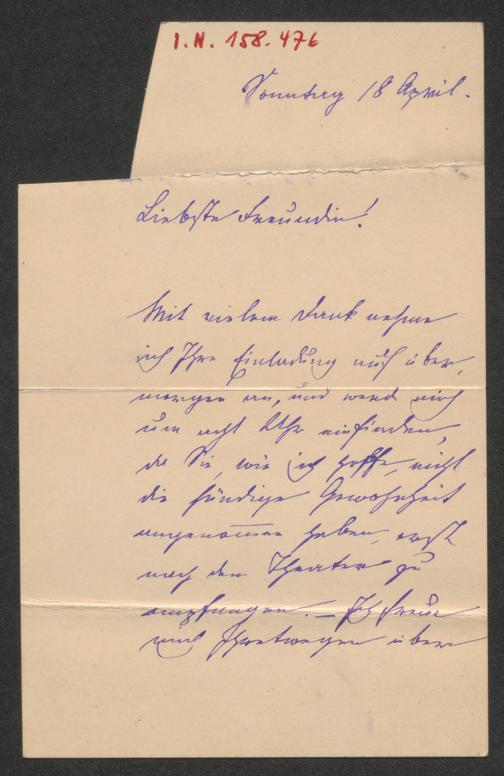 I.N. 158.476
Sonntag 18 April.
Liebste Freundin!
Mit vielem Dank nehme
ich Ihre Einladung auf über-
morgen an, und werde mich
um acht Uhr einfinden,
da Sie, wie ich hoffe, nicht
die sündige Gewohnheit
angenommen haben, erst
nach dem Theater zu
empfangen. – Ich freue
mich Ihretwegen über